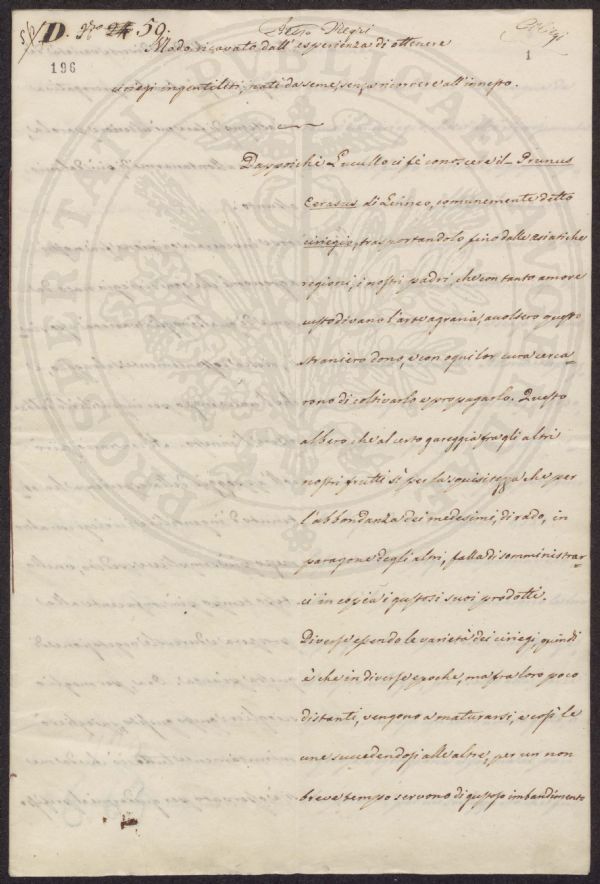 D. Nro 24 59.
196
1
Modo ricavato dall'esperienza di ottenere
ciriegi ingentiliti, nati da seme, senza ricorrere all'innesto.
Dappoichè Lucullo ci fè conoscere il Prunus
Cerasus di Linneo, comunemente detto
ciriegio, trasportandolo fino dalle asiatiche
regioni, i nostri padri che con tanto amore
custodivano l'arte agraria, accolsero questo
straniero dono, e con ogni lor cura cerca-
rono di coltivarlo e propagarlo. Questo
albero che al certo gareggia fra gli altri
nostri frutti sì per la squisitezza che per
l'abbondanza dei medesimi, di rado, in
paragone degli altri, falla di somministrar-
ci in copia i gustosi suoi prodotti.
Diverse essendo le varietà dei ciriegi, quindi
è che in diverse epoche, ma fra loro poco
distanti, vengono a maturarsi, e così le
une succedendosi alle altre, per un non
breve tempo servono di gustoso imbandimento
PROSPERITATI PUBLICAE